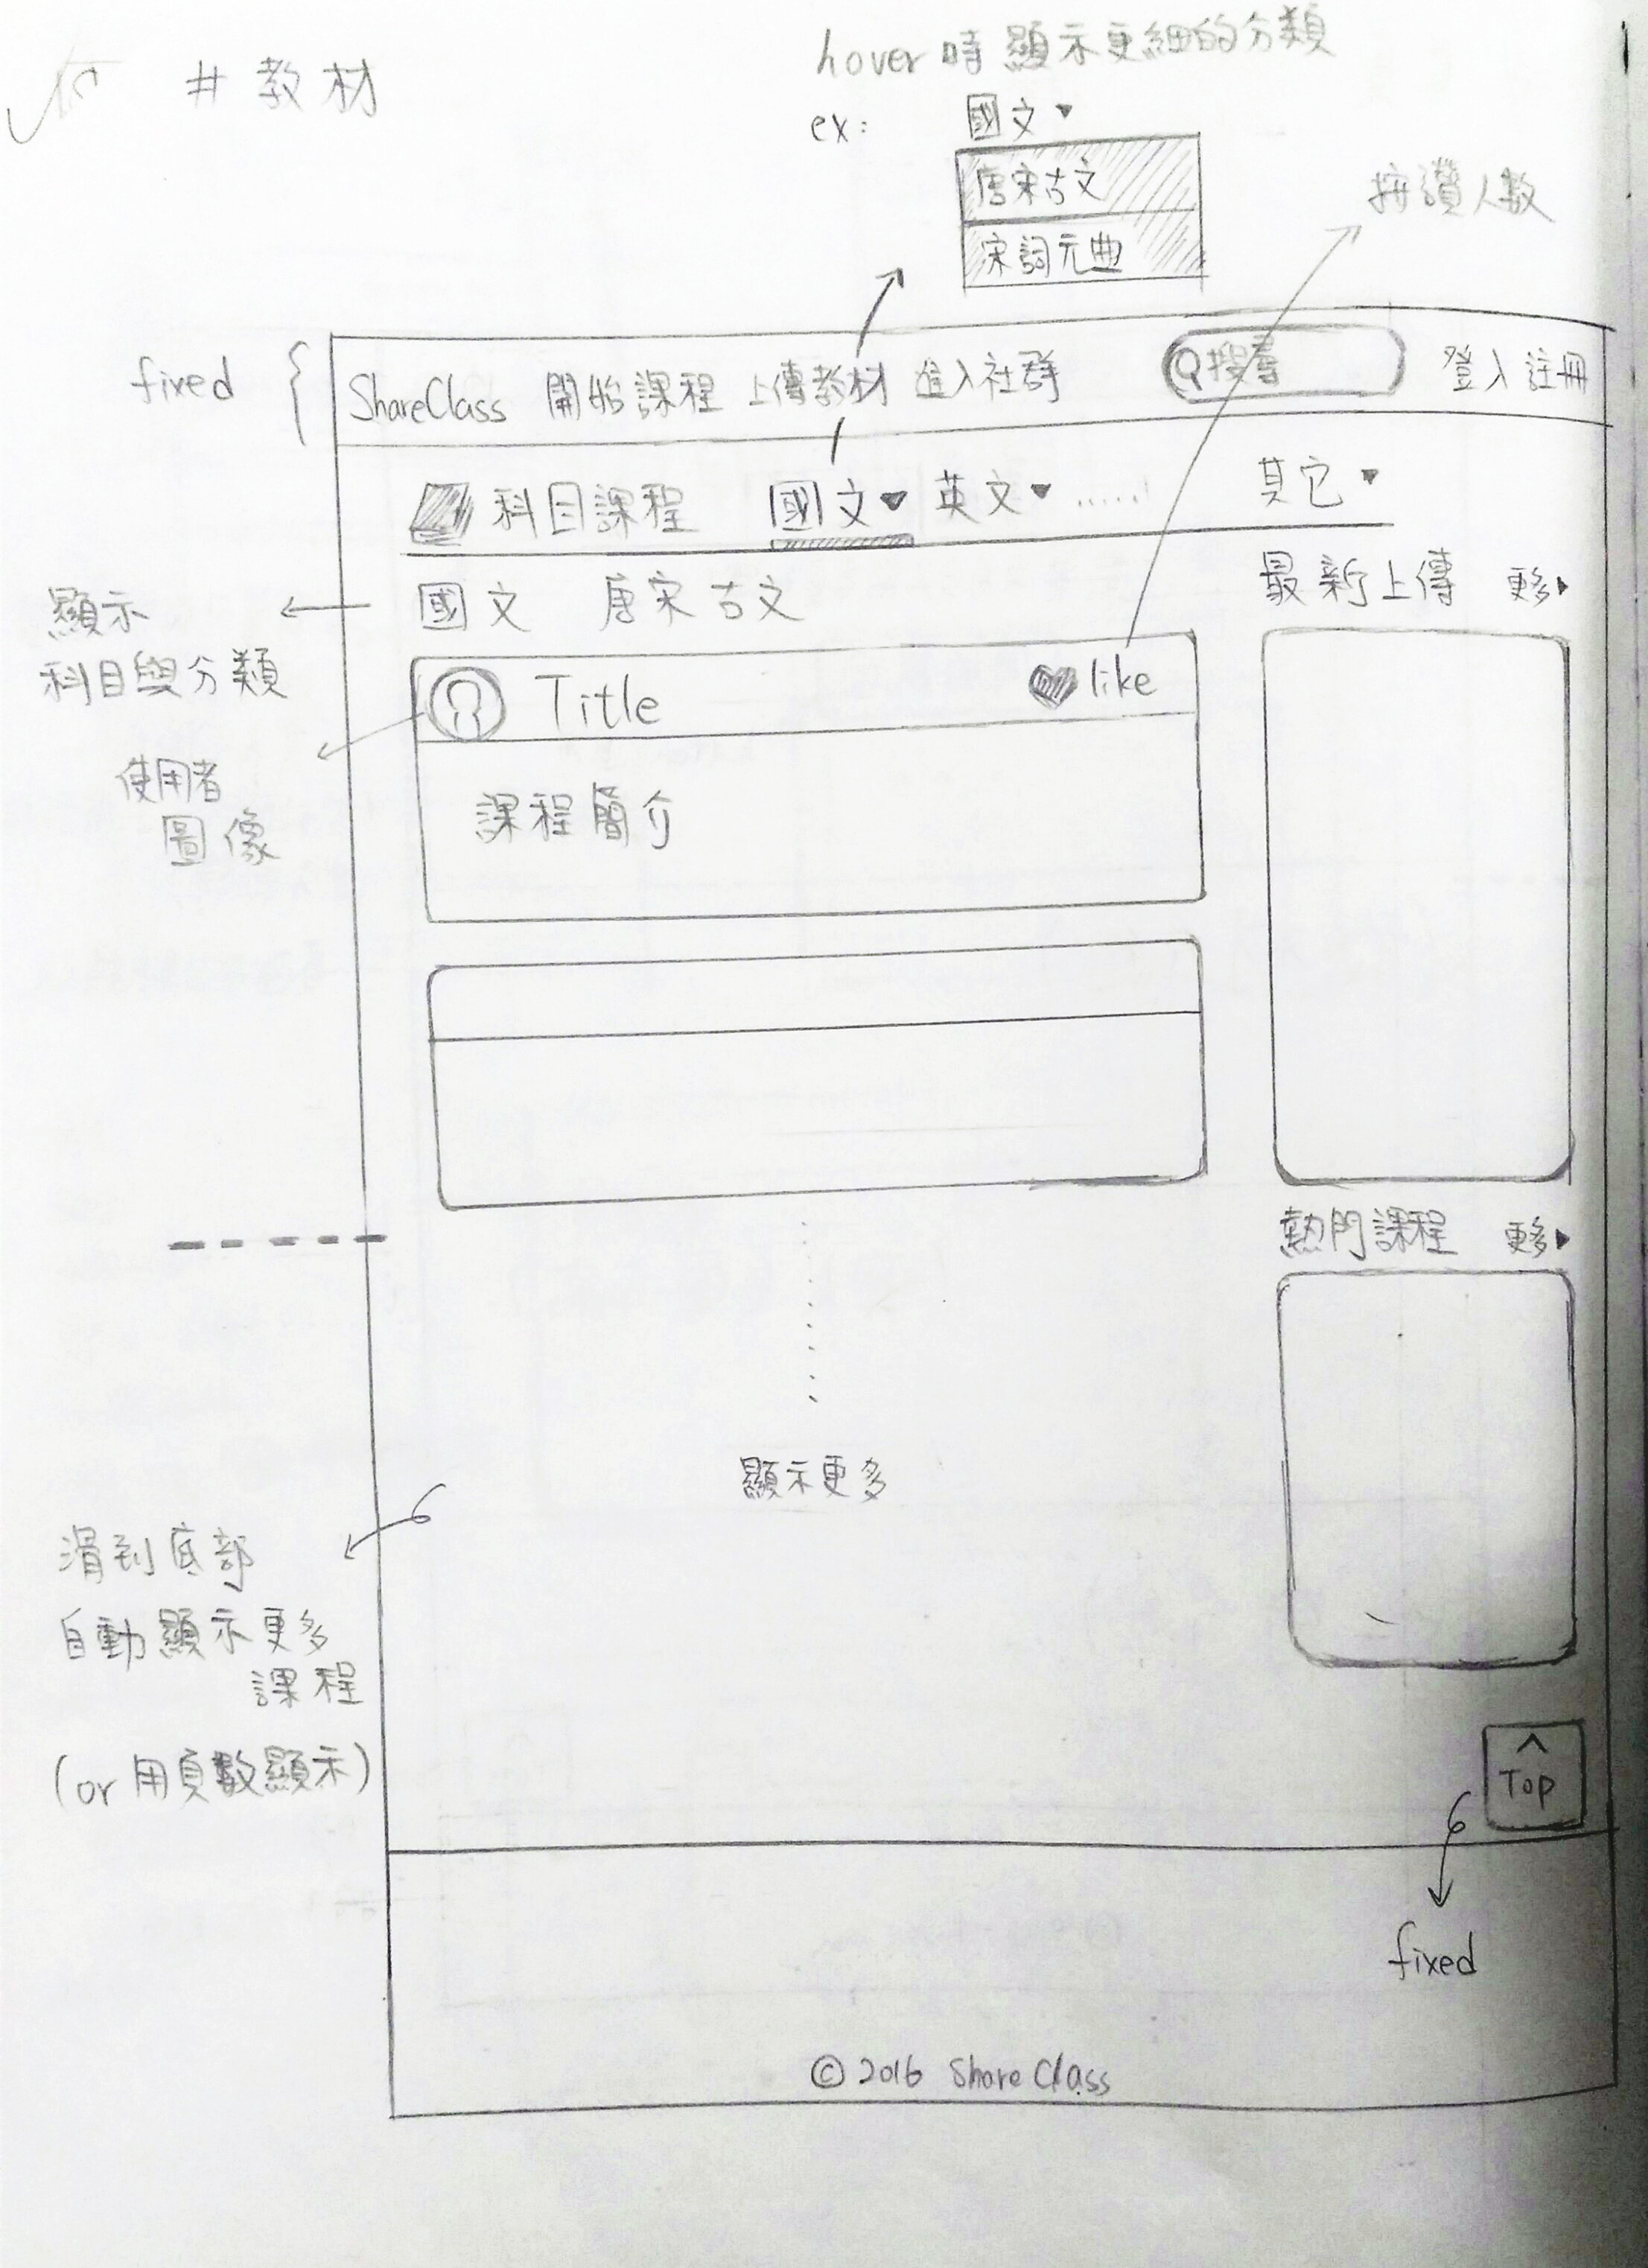 # 教材
hover 時顯示更細的分類
ex:
國文▾
唐宋古文
宋詞元曲
按讚人數
fixed
ShareClass 開始課程 上傳教材 進入社群 搜尋 登入 註冊
科目課程 國文▾ 英文▾ ...... 其它▾
顯示
科目與分類
國文 唐宋古文
最新上傳 更多▸
Title like
使用者
圖像
課程簡介
熱門課程 更多▸
顯示更多
滑到底部
自動顯示更多
課程
(or 用頁數顯示)
^
Top
fixed
© 2016 ShareClass